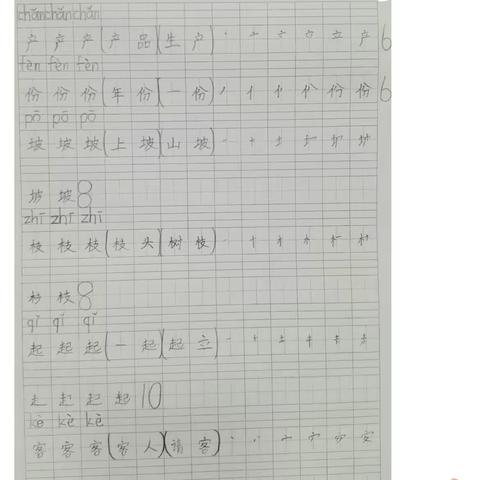 chǎn chǎn chǎn
产 产 产 (产 品)(生 产) 产 6
fèn fèn fèn
份 份 份 (年 份)(一 份) 亻 份 份 6
pō pō pō
坡 坡 坡 (上 坡)(山 坡) 一 十 土
坡 坡 8
zhī zhī zhī
枝 枝 枝 (枝 头)(树 枝) 一 十 才 木
枝 8
qǐ qǐ qǐ
起 起 起 (一 起)(起 立) 一 十 土 キ
走 起 起 起 10
kè kè kè
客 客 客 (客 人)(请 客)